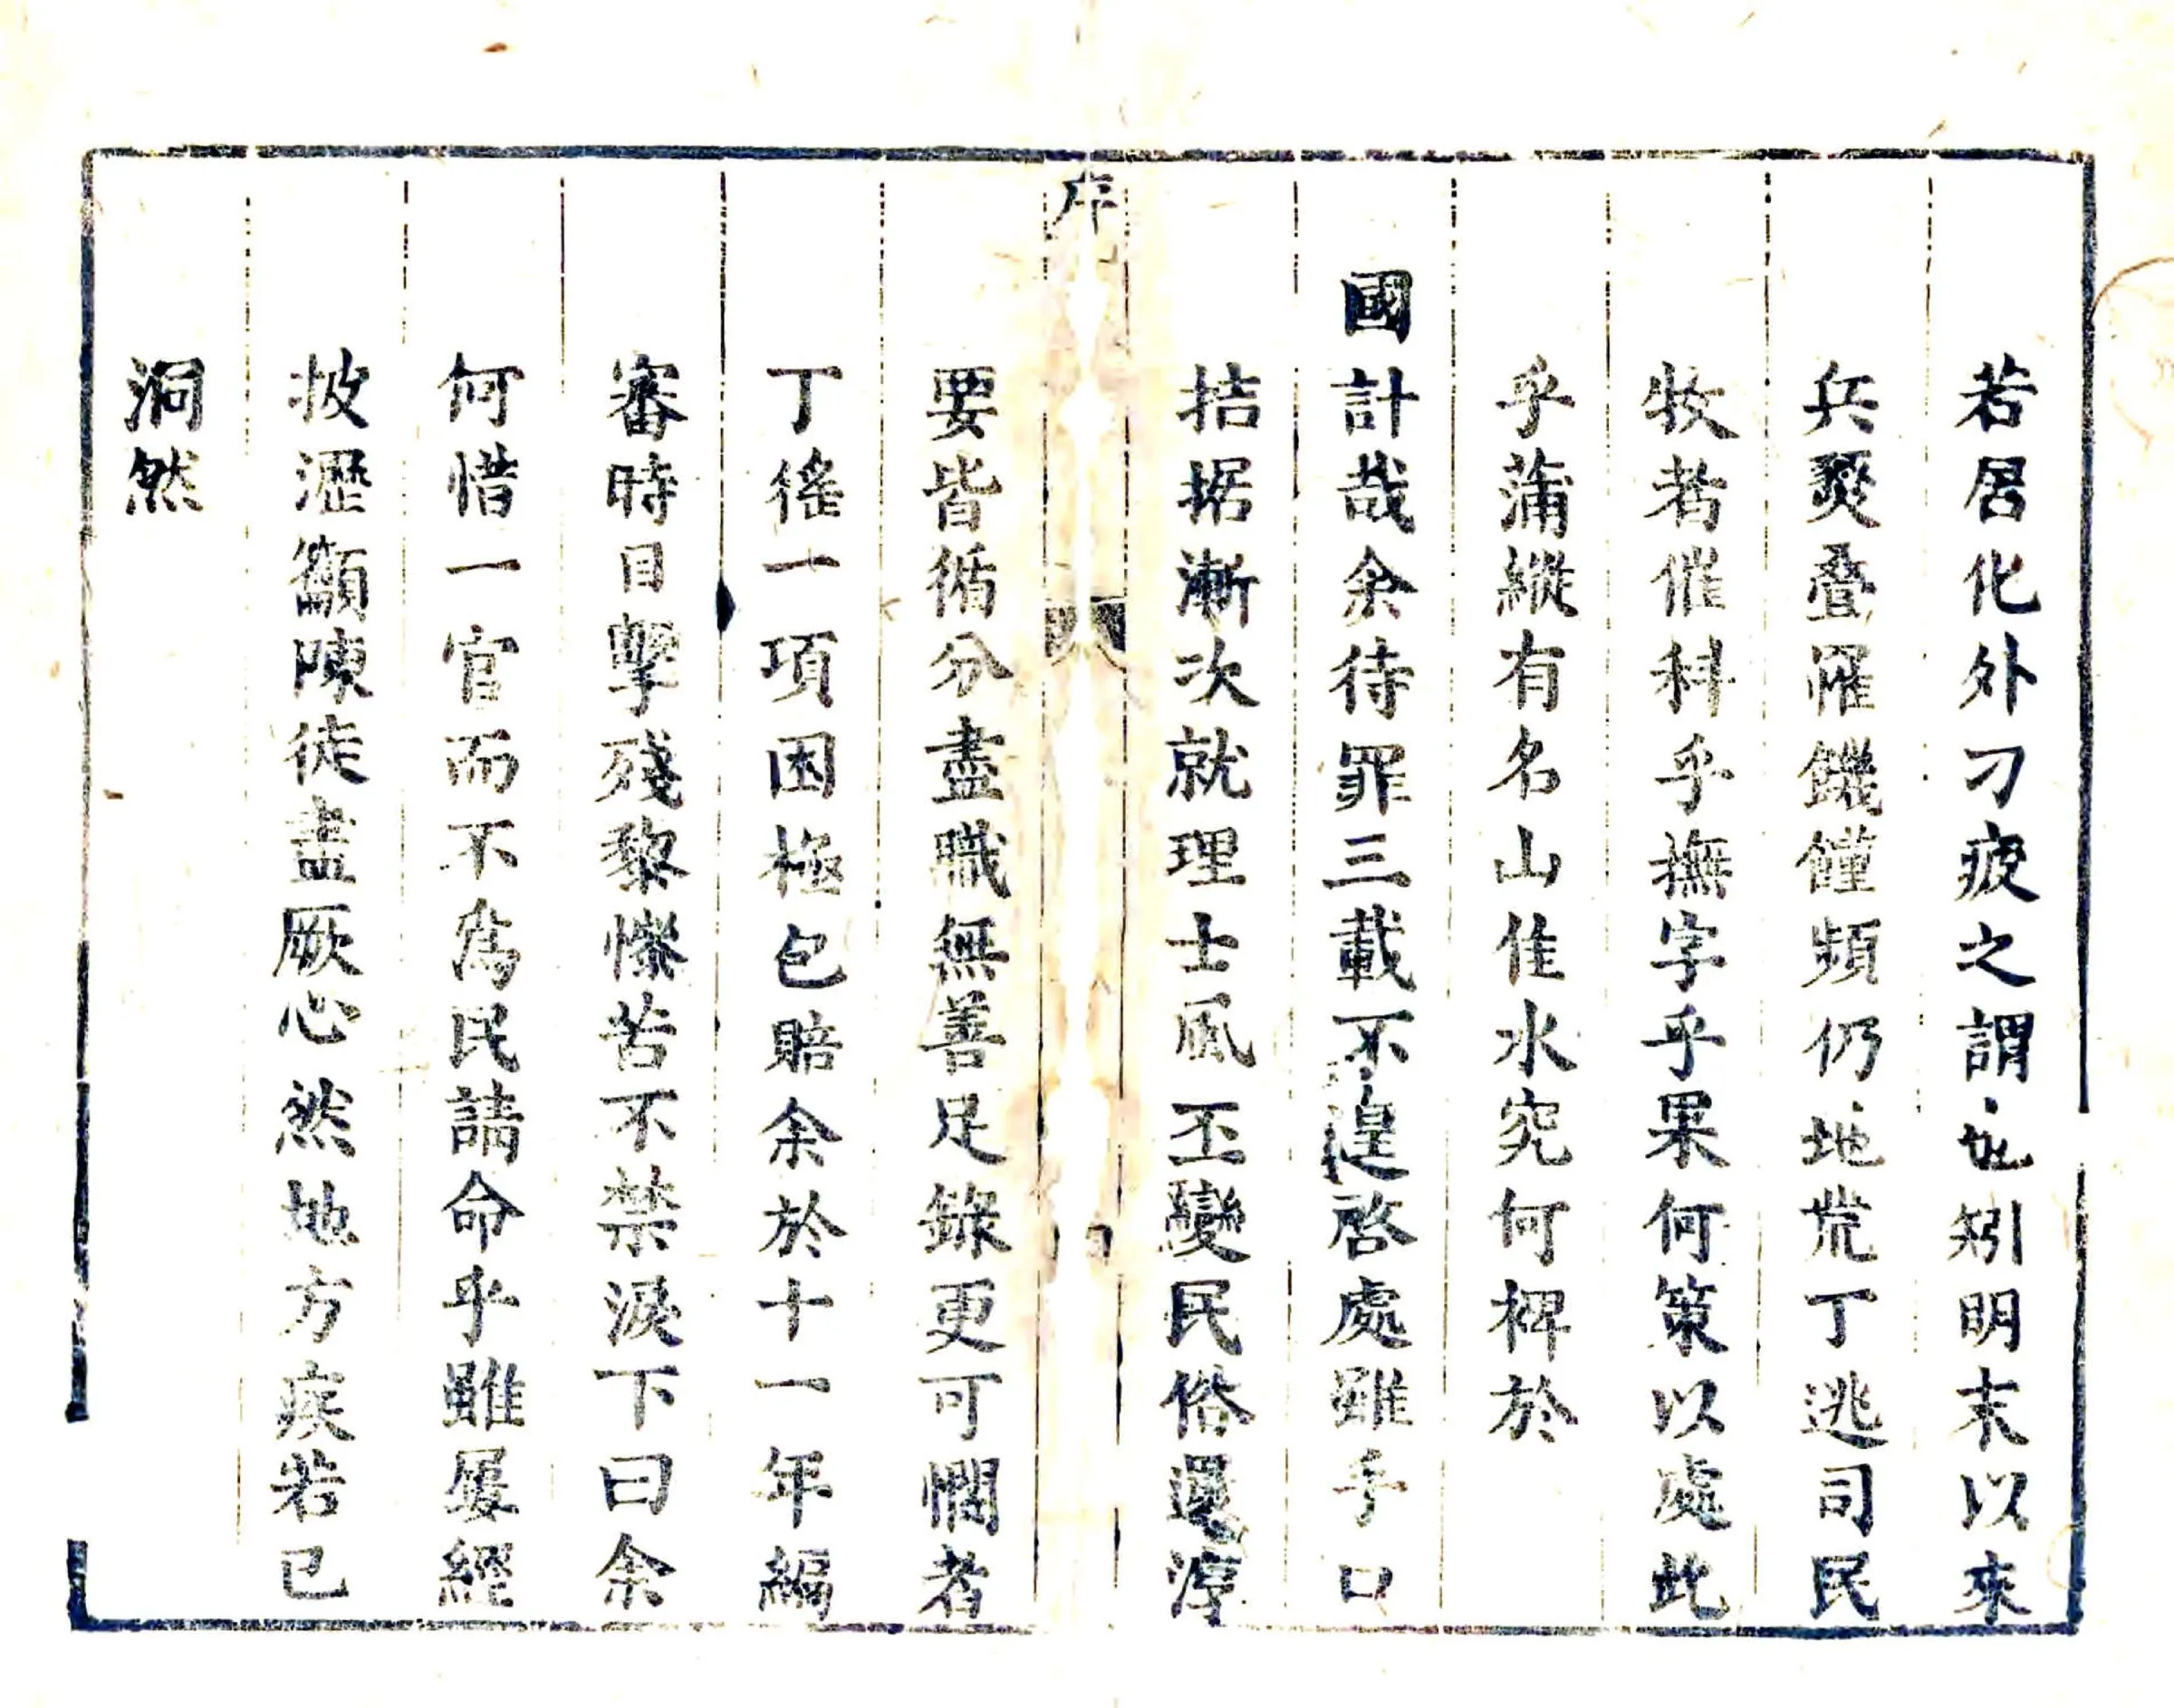 若居化外刁疲之謂也矧明末以來
兵燹疊罹饑饉頻仍地荒丁逃司民
牧者催科乎撫字乎果何策以處此
乎蒲縱有名山佳水究何裨於
國計哉余待罪三載不遑啓處雖手口
拮据漸次就理士風丕變民俗還淳
序
四
要皆循分盡職無善足錄更可憫者
丁徭一項困極包賠余於十一年編
審時目擊殘黎慘苦不禁淚下曰余
何惜一官而不為民請命乎雖屢經
披瀝籲陳徒盡厥心然地方疾若已
洞然